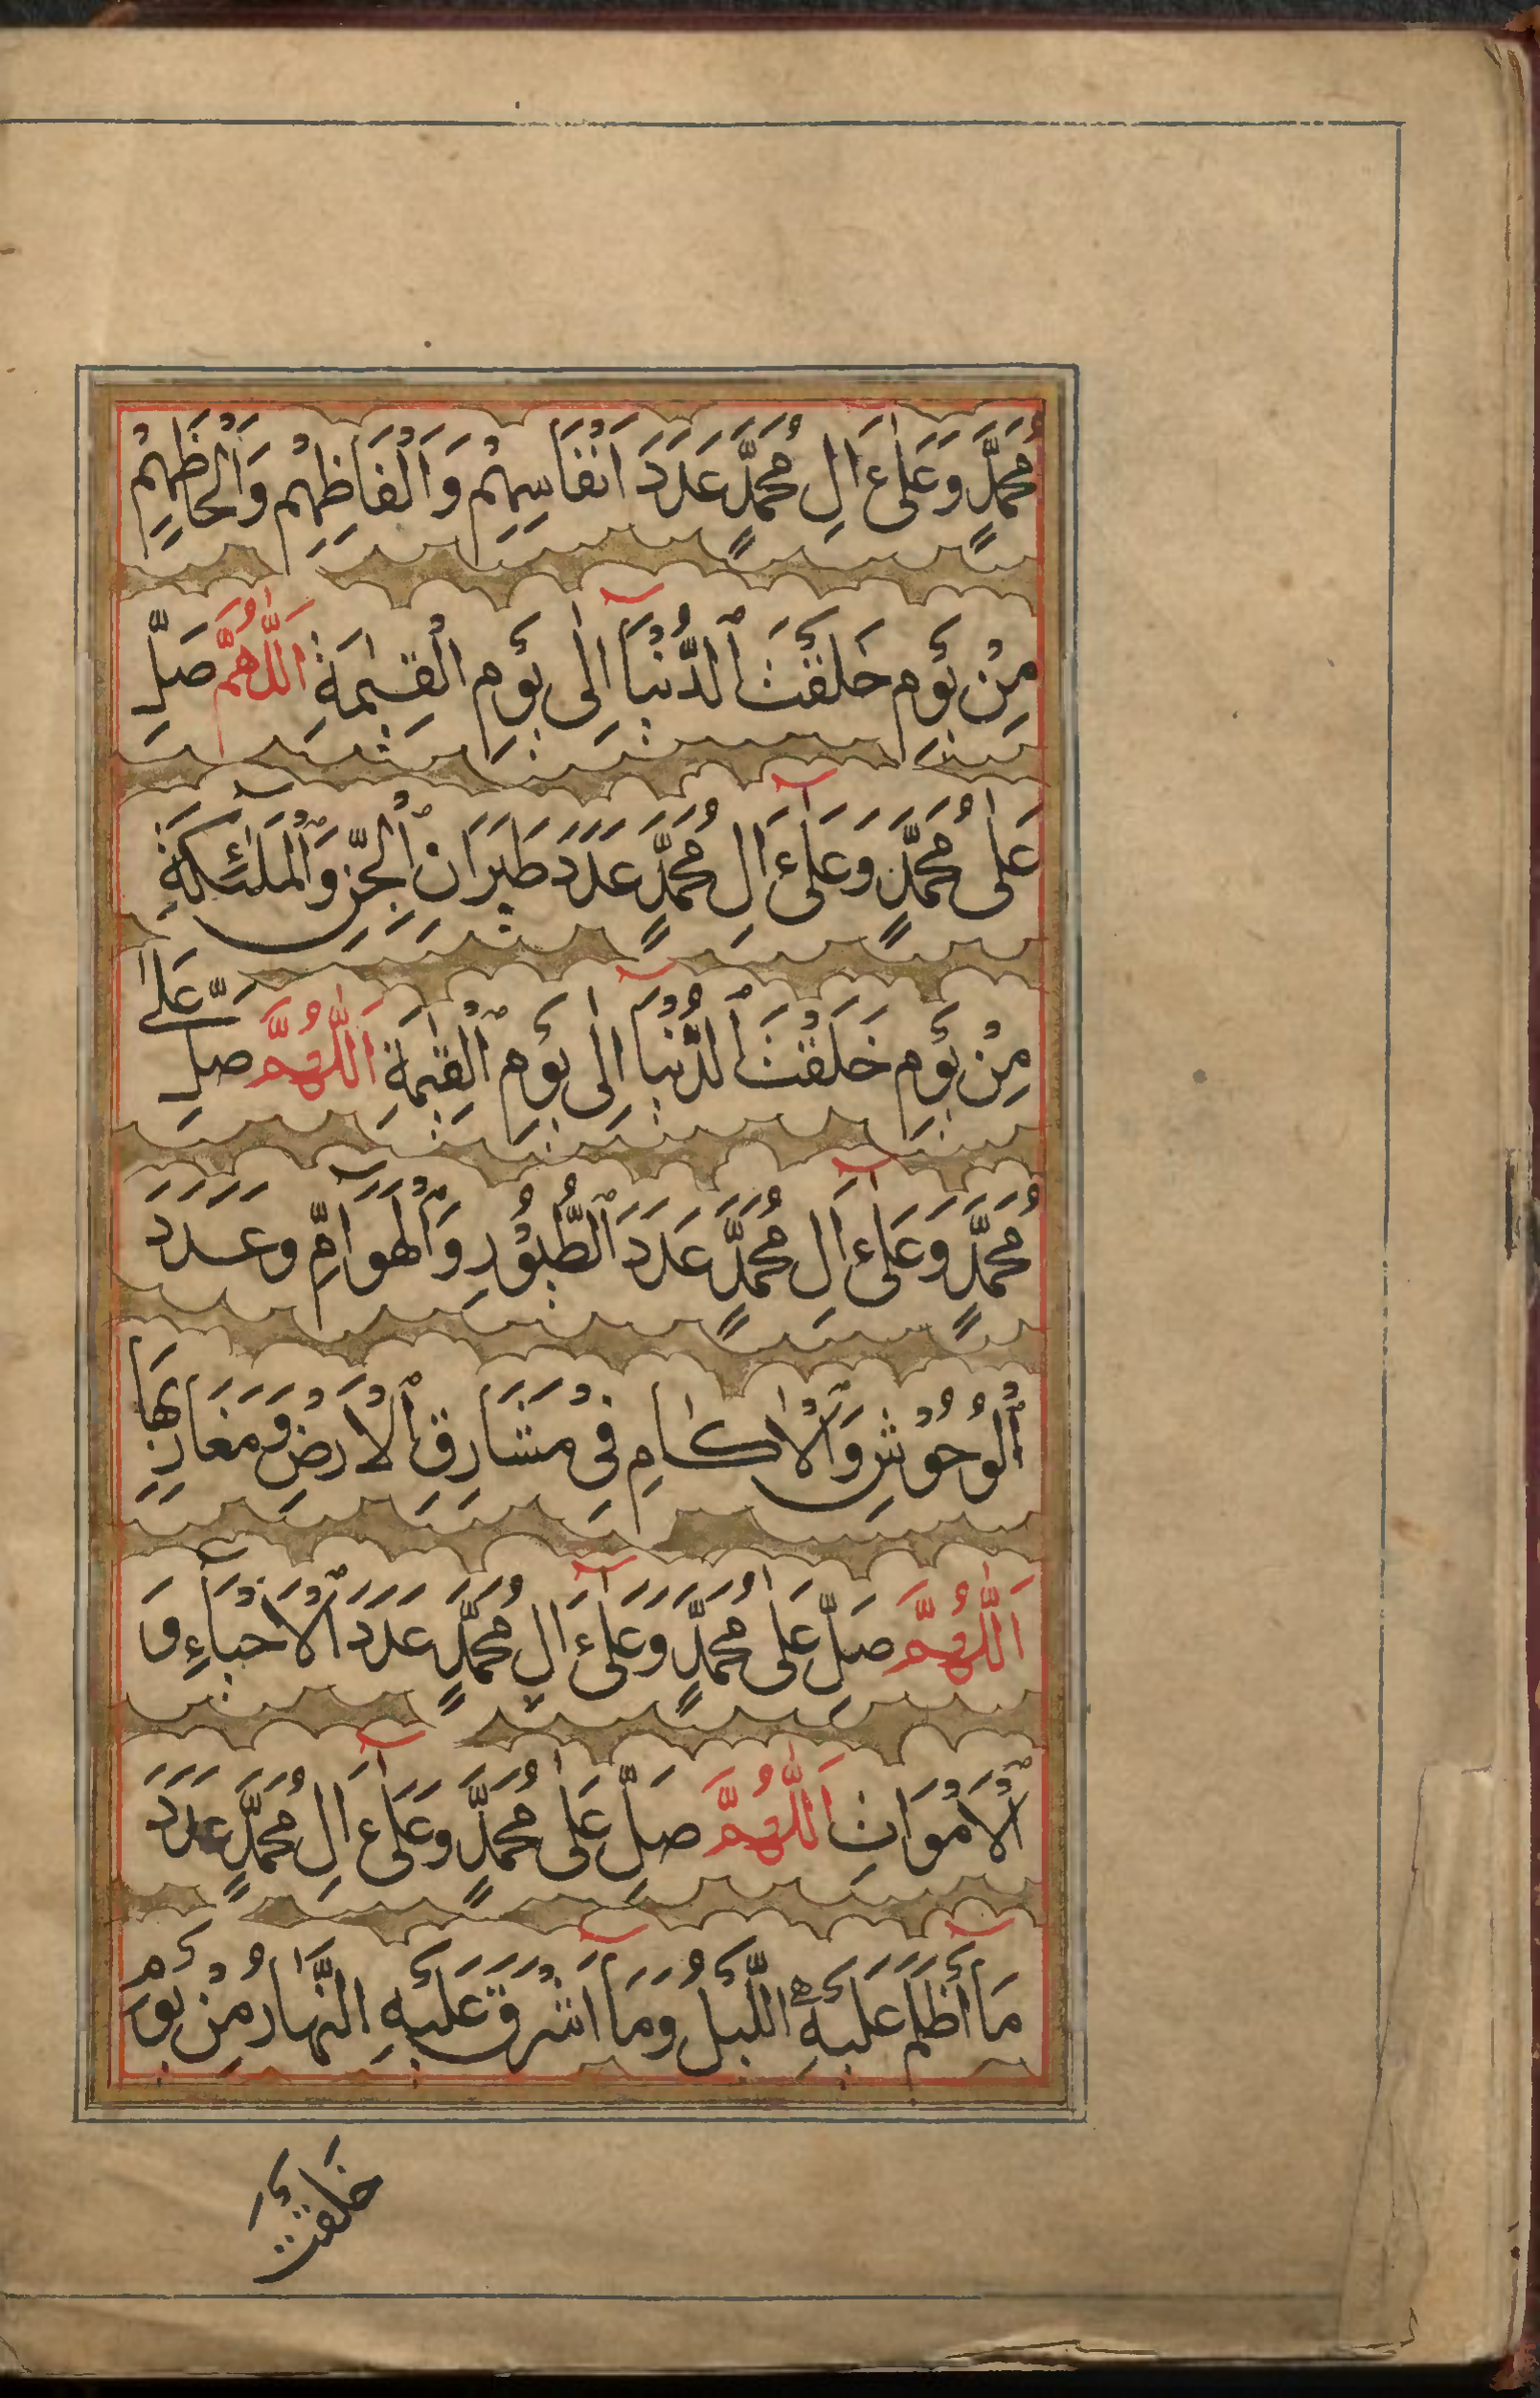 مُحَمَّدٍ وَعَلٰٓى اٰلِ مُحَمَّدٍ عَدَدَ اَنْفَاسِهِمْ وَاَلْفَاظِهِمْ وَاَلْحَاظِهِمْ
مِنْ يَوْمِ خَلَقْتَ الدُّنْيَآ اِلٰى يَوْمِ الْقِيٰمَةِ اَللّٰهُمَّ صَلِّ
عَلٰى مُحَمَّدٍ وَعَلٰٓى اٰلِ مُحَمَّدٍ عَدَدَ طَيَرَانِ الْجِنِّ وَالْمَلٰٓئِكَةِ
مِنْ يَوْمِ خَلَقْتَ الدُّنْيَآ اِلٰى يَوْمِ الْقِيٰمَةِ اَللّٰهُمَّ صَلِّ عَلٰى
مُحَمَّدٍ وَعَلٰٓى اٰلِ مُحَمَّدٍ عَدَدَ الطُّيُوْرِ وَالْهَوَآمِّ وَعَدَدَ
الْوُحُوْشِ وَالْاٰكَامِ فِىْ مَشَارِقِ الْاَرْضِ وَمَغَارِبِهَا
اَللّٰهُمَّ صَلِّ عَلٰى مُحَمَّدٍ وَعَلٰٓى اٰلِ مُحَمَّدٍ عَدَدَ الْاَحْيَآءِ وَ
الْاَمْوَاتِ اَللّٰهُمَّ صَلِّ عَلٰى مُحَمَّدٍ وَعَلٰٓى اٰلِ مُحَمَّدٍ عَدَدَ
مَآ اَظْلَمَ عَلَيْهِ اللَّيْلُ وَمَآ اَشْرَقَ عَلَيْهِ النَّهَارُ مِنْ يَوْمِ
خَلَقْتَ